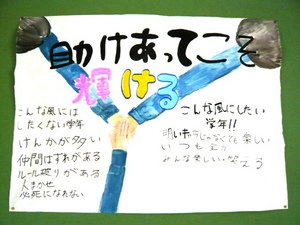 助けあってこそ
輝ける
こんな風には
したくない学年
けんかが多い
仲間はずれがある
ルール破りがある
人まかせ
必死になれない
こんな風にしたい
学年!!
明るい
なくても楽しい
いつも全力
みんな楽しい・笑えろ